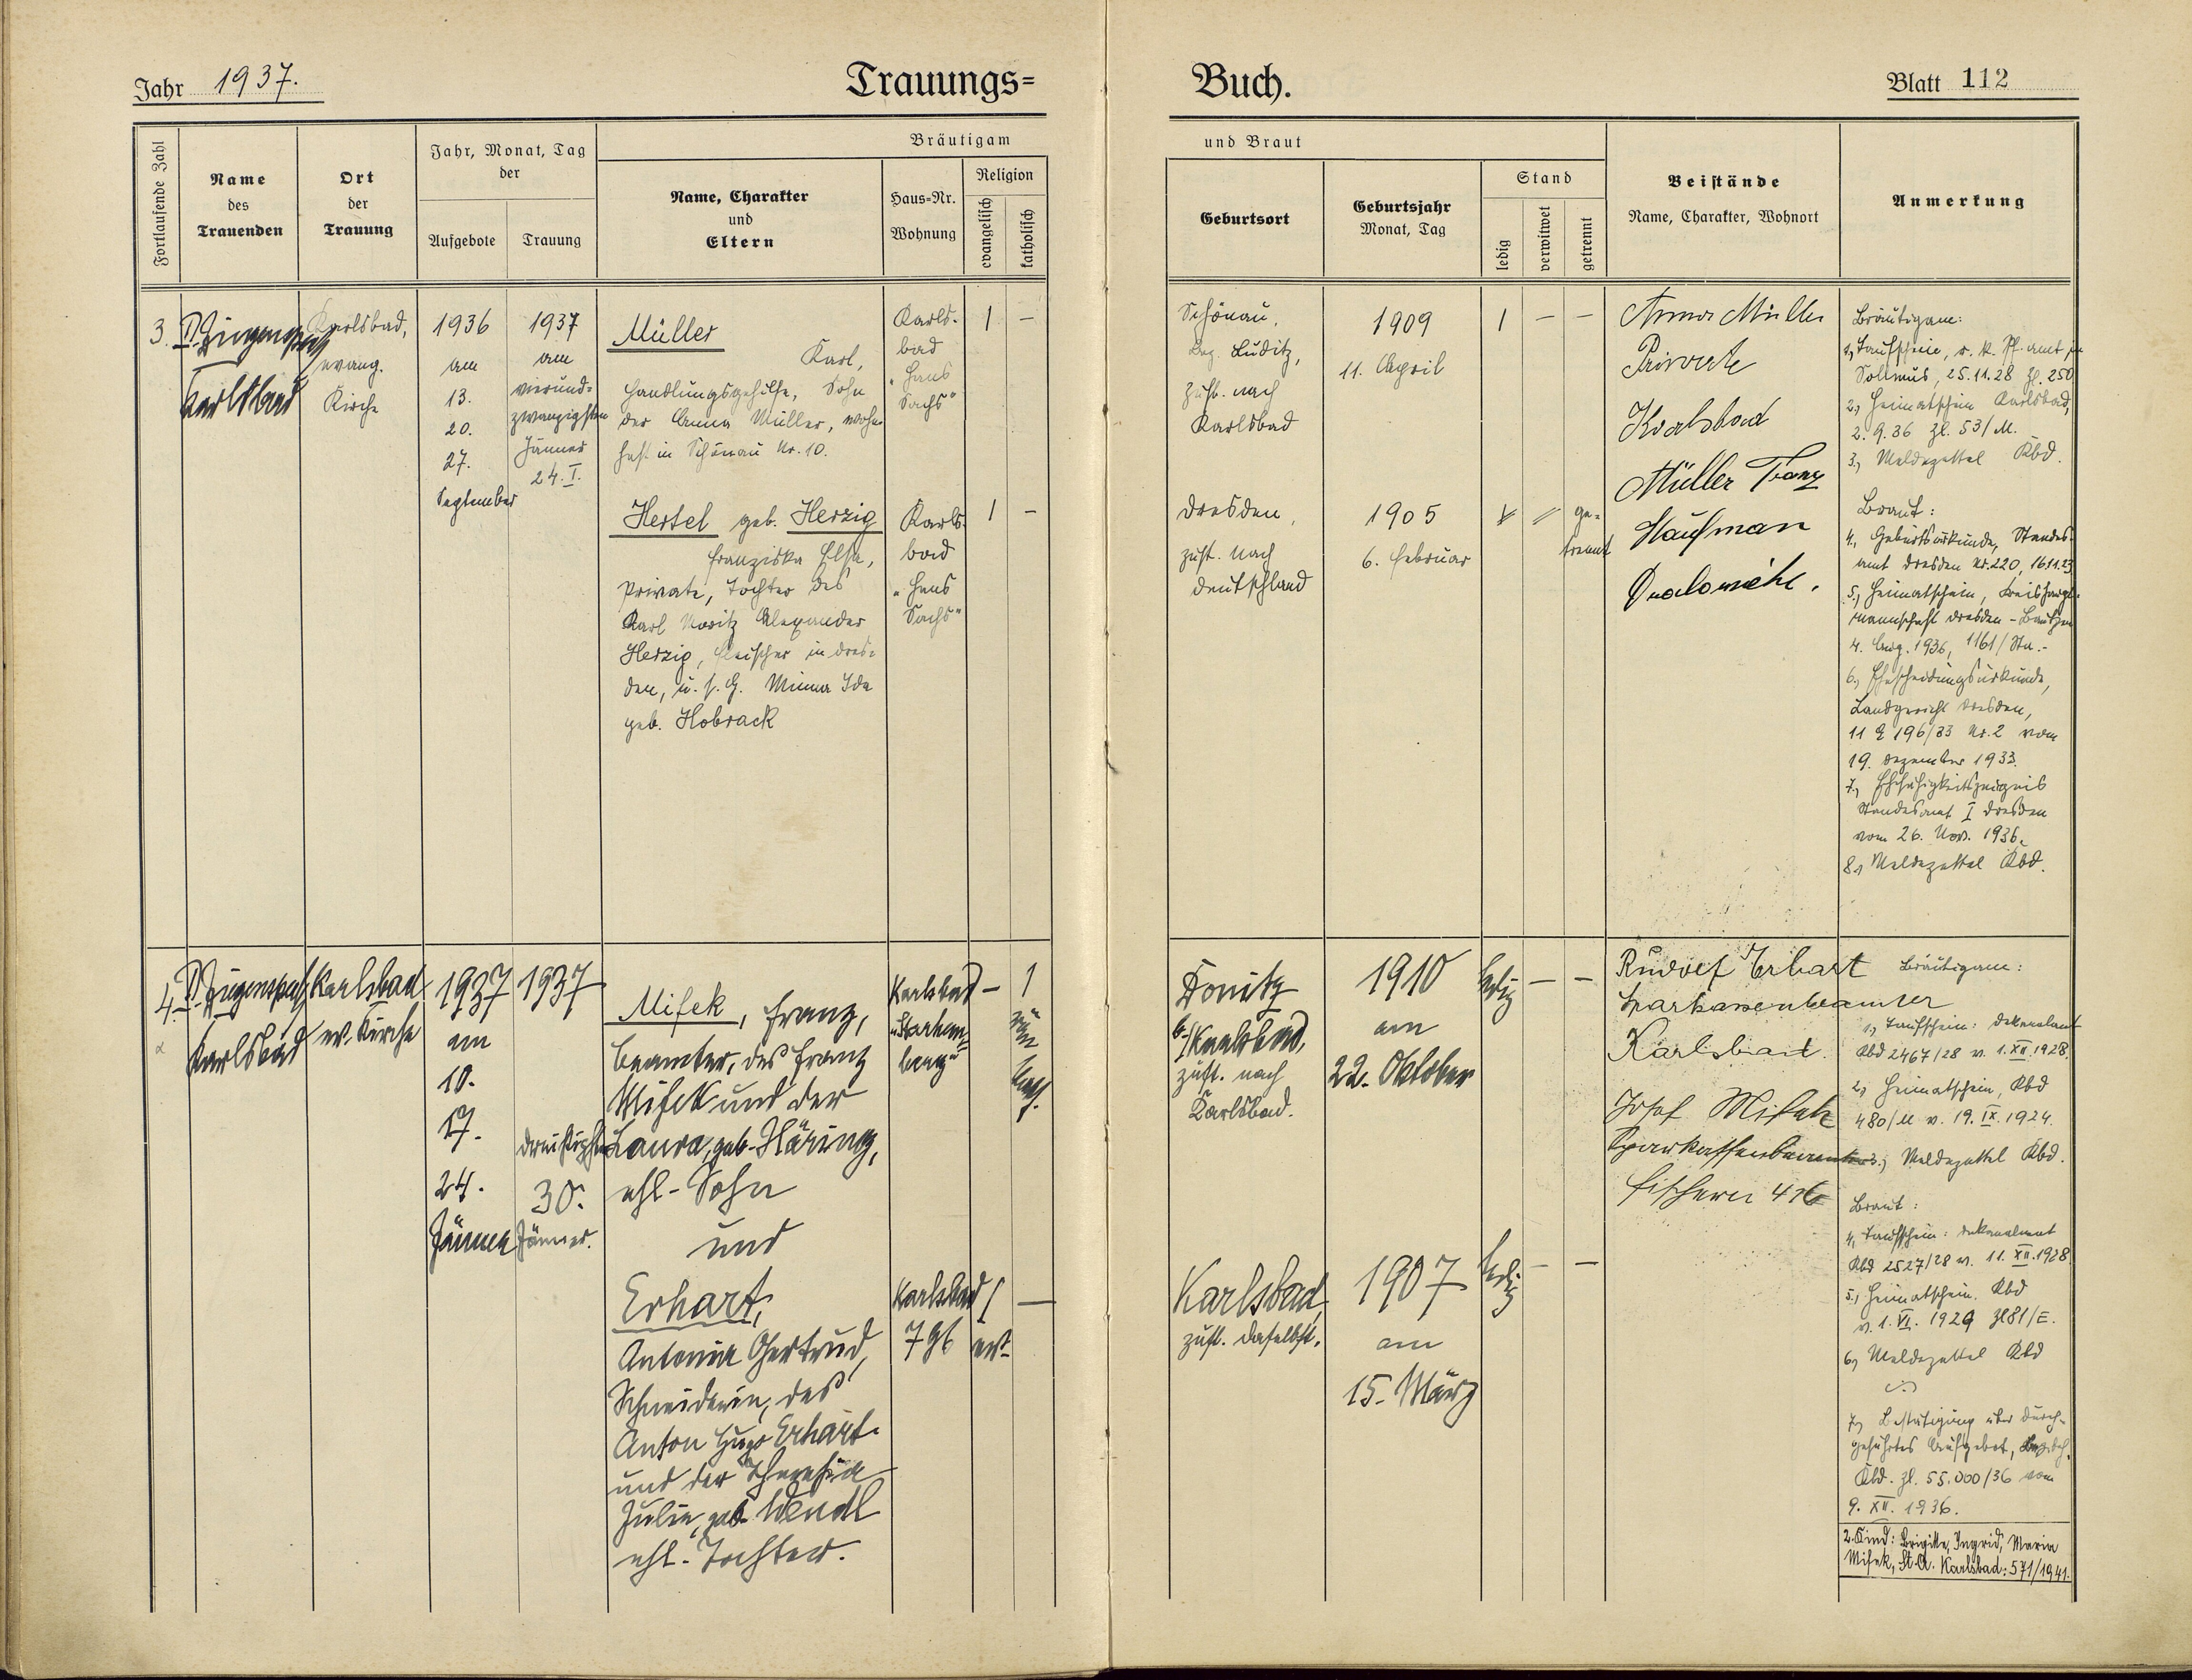 Jahr 1937.
Trauungs=
Buch.
Blatt 112
Fortlaufende Zahl
Name
des
Trauenden
Ort
der
Trauung
Jahr, Monat, Tag
der
Aufgebote
Trauung
Bräutigam
Name, Charakter
und
Eltern
Haus=Nr.
Wohnung
Religion
evangelisch
katholisch
und Braut
Geburtsort
Geburtsjahr
Monat, Tag
Stand
ledig
verwitwet
getrennt
Beistände
Name, Charakter, Wohnort
Anmerkung
3.
Karlsbad
Karlsbad,
evang.
Kirche
1936
am
13.
20.
27.
September
1937
am
vierund=
zwanzigsten
Jänner
24. I.
Müller
Karl,
Handlungsgehilfe, Sohn
der Anna Müller, wohn-
haft in Schönau Nr. 10.
Karls-
bad
"Hans
Sachs"
1
–
Schönau,
Bez. Luditz,
zust. nach
Karlsbad
1909
11. April
1 – –
Hertel geb. Herzig
Franziska Elsa,
Private, Tochter des
Karl Moritz Alexander
Herzig, Fleischer in Dres-
den, u. s. G. Minna Ida
geb. Hobrack
Karls-
bad
"Hans
Sachs"
1 –
Dresden,
zust. nach
Deutschland
1905
6. Februar
ge-
trennt
Anna Müller
Private
Karlsbad
Müller Franz
Kaufman
Bräutigam:
1., Taufschein, r. k. Pf. amt in
Sollmus, 25.11.28 Zl. 250
2., Heimatschein Karlsbad,
2. 9. 36 Zl. 53/M.
3., Meldezettel Kbd.
Braut:
4., Geburtsurkunde, Standes-
amt Dresden Nr. 220, 16.11.23
5., Heimatschein, Kreishaupt-
mannschaft Dresden - Bautzen
4. Aug. 1936, 1161/Sta.-
6., Ehescheidungsurkunde,
Landgericht Dresden,
11 Q 196/33 Nr. 2 vom
19. Dezember 1933.
7., Ehefähigkeitszeugnis
Standesamt I Dresden
vom 26. Nov. 1936.
8., Meldezettel Kbd.
4.
Karlsbad
Karlsbad
ev. Kirche
1937
am
10.
17.
24.
Jänner
1937
dreissigsten
30.
Jänner.
Misek, Franz,
Beamter, des Franz
Misek und der
Laura, geb. Häring,
ehl. Sohn
und
Karlsbad
– 1
röm
kath.
Donitz
b/ Karlsbad,
zust. nach
Karlsbad.
1910
am
22. Oktober
ledig – –
Erhart,
Antonia Gertrud,
Schneiderin, des
Anton Hugo Erhart
und der Theresia
Julie, geb. Wendl
ehl. Tochter.
Karlsbad
796
1 –
ev.
Karlsbad,
zust. daselbst.
1907
am
15. März
ledig – –
Rudolf Erhart
Sparkassenbeamter
Karlsbad.
Josef Misek
Sparkassenbeamter
Fischern
Bräutigam:
1., Taufschein: Dekanalamt
Kbd 2467/28 v. 1. XII. 1928.
2., Heimatschein, Kbd
480/M v. 19. IX. 1924.
3., Meldezettel Kbd.
Braut:
4., Taufschein: Dekanalamt
Kbd 2527/28 v. 11. XII. 1928
5., Heimatschein. Kbd
v. 1. VI. 1929 Zl 81/E.
6., Meldezettel Kbd
7., Bestätigung über durch-
geführtes Aufgebot, Bezbeh.
Kbd. Zl. 55.000/36 vom
9. XII. 1936.
2. Kind: Brigitte, Ingrid, Maria
Misek, St. A. Karlsbad: 571/1941.